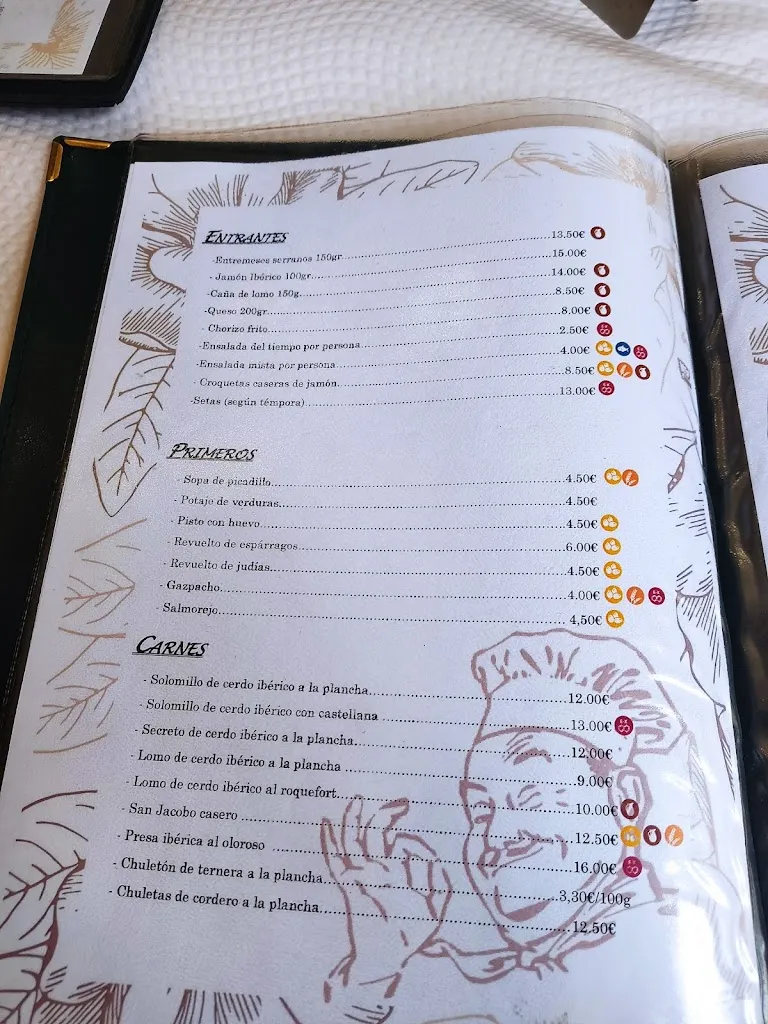 ENTRANTES
-Entremeses serranos 150gr.....13.50€
- Jamón ibérico 100gr.....15.00€
-Caña de lomo 150g.....14.00€
-Queso 200gr.....8.50€
- Chorizo frito.....8.00€
-Ensalada del tiempo por persona.....2.50€
-Ensalada mista por persona.....4.00€
- Croquetas caseras de jamón.....8.50€
-Setas (según témpora).....13.00€
PRIMEROS
- Sopa de picadillo.....4.50€
- Potaje de verduras.....4.50€
- Pisto con huevo.....4.50€
- Revuelto de espárragos.....6.00€
- Revuelto de judías.....4.50€
- Gazpacho.....4.00€
- Salmorejo.....4,50€
CARNES
- Solomillo de cerdo ibérico a la plancha.....12.00€
- Solomillo de cerdo ibérico con castellana.....13.00€
- Secreto de cerdo ibérico a la plancha.....12,00€
- Lomo de cerdo ibérico a la plancha.....9.00€
- Lomo de cerdo ibérico al roquefort.....10.00€
- San Jacobo casero.....12.50€
- Presa ibérica al oloroso.....16.00€
- Chuletón de ternera a la plancha.....3,30€/100g
- Chuletas de cordero a la plancha.....12.50€